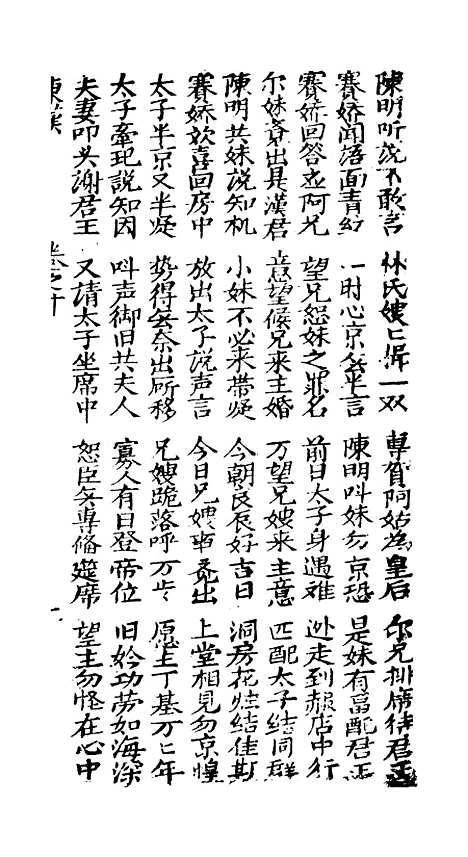 陳明听説不敢言 林氏嫂ヒ揖一双 專賀阿姑為皇后 兄排席待君王
賽娇闻落面青红 一时心京半言 陳明呌妹勿京恐 是妹有富配君王
賽娇回答应阿兄 望兄恕妹之罪名 前日太子身遇难 迯走到赧店中行
尔妹竟出是漢君 意望候兄来主婚 万望兄嫂来主意 匹配太子结同群
陳明共妹説知机 小妹不必来带疑 今朝良辰好吉日 洞房花烛结佳期
賽娇欢喜回房中 放出太子説声言 今日兄嫂出 上堂相見勿京惶
太子半京又半疑 势得无奈出厛移 兄嫂跪落呼万岁 愿主丁基万ヒ年
太子牵玘説知因 呌声御旧共夫人 寡人有日登帝位 旧妗功劳如海深
夫妻叩头谢君王 又请太子坐席中 恕臣无專俻筵席 望主勿怪在心中
東漢 卷之十 一